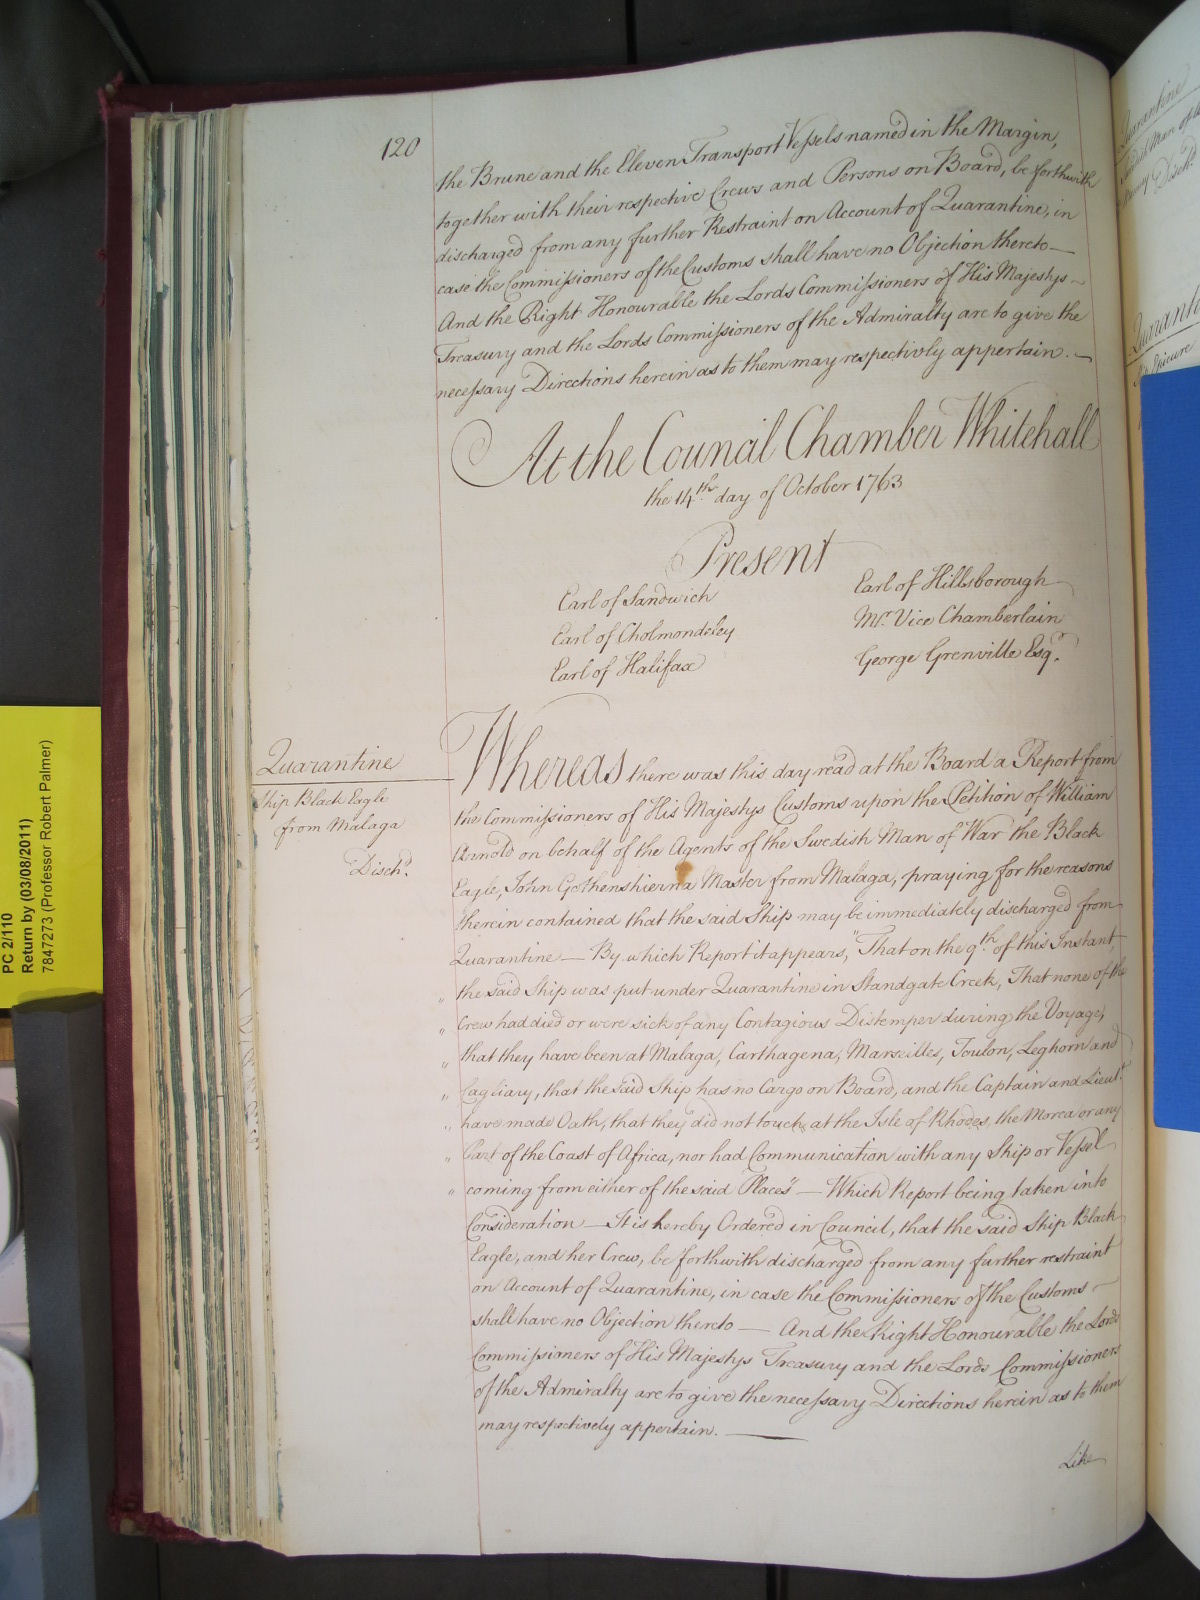 120
the Brune and the Eleven Transport Vessels named in the Margin,
together with their respective Crews and Persons on Board, be forthwith
discharged from any further Restraint on Account of Quarantine, in
case the Commissioners of the Customs shall have no Objection thereto —
And the Right Honourable the Lords Commissioners of His Majestys
Treasury and the Lords Commissioners of the Admiralty are to give the
necessary Directions herein as to them may respectivly appertain. —
At the Council Chamber Whitehall
the 14th day of October 1763
Present
Earl of Sandwich
Earl of Cholmondeley
Earl of Halifax
Earl of Hillsborough
Mr. Vice Chamberlain
George Grenville Esqr.
Quarantine
Ship Black Eagle
from Malaga
Dischd.
Whereas there was this day read at the Board a Report from
the Commissioners of His Majestys Customs upon the Petition of William
Arnold on behalf of the Agents of the Swedish Man of War the Black
Eagle, John Gothenshierna Master from Malaga, praying for the reasons
therein contained that the said Ship may be immediately discharged from
Quarantine — By which Report it appears, "That on the 9th of this Instant,
" the said Ship was put under Quarantine in Standgate Creek, That none of the
" Crew had died or were sick of any Contagious Distemper during the Voyage,
" that they have been at Malaga, Carthagena, Marseilles, Toulon, Leghorn and
" Cagliary, that the said Ship has no Cargo on Board, and the Captain and Lieut.
" have made Oath, that they did not touch at the Isle of Rhodes, the Morea or any
" Part of the Coast of Africa, nor had Communication with any Ship or Vessel
" coming from either of the said Places" — Which Report being taken into
Consideration — It is hereby Ordered in Council, that the said Ship Black
Eagle, and her Crew, be forthwith discharged from any further restraint
on Account of Quarantine, in case the Commissioners of the Customs —
shall have no Objection thereto — And the Right Honourable the Lords
Commissioners of His Majestys Treasury and the Lords Commissioners
of the Admiralty are to give the necessary Directions herein as to them
may respectively appertain. —
Like
PC 2/110
Return by (03/08/2011)
7847273 (Professor Robert Palmer)